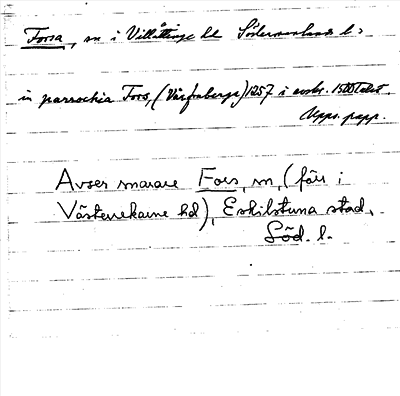 Forsa, sn i Villåttinge hd Södermanlands l:
in parrochia Fors, (Värfruberga) 1257 i avskr. 1500talet,
Upps. papp.
Avser snarare Fors, sn, (förr i
Västerrekarne hd), Eskilstuna stad,
Söd. l.